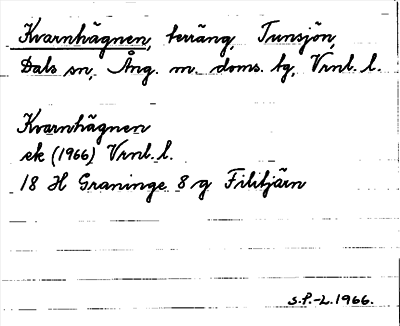 Kvarnhägnen, terräng, Tunsjön,
Dals sn, Ång. m. doms. tg, Vrnl. l.
Kvarnhägnen
ek (1966) Vrnl. l.
18 H Graninge 8 g Filitjärn
S.P.-L. 1966.